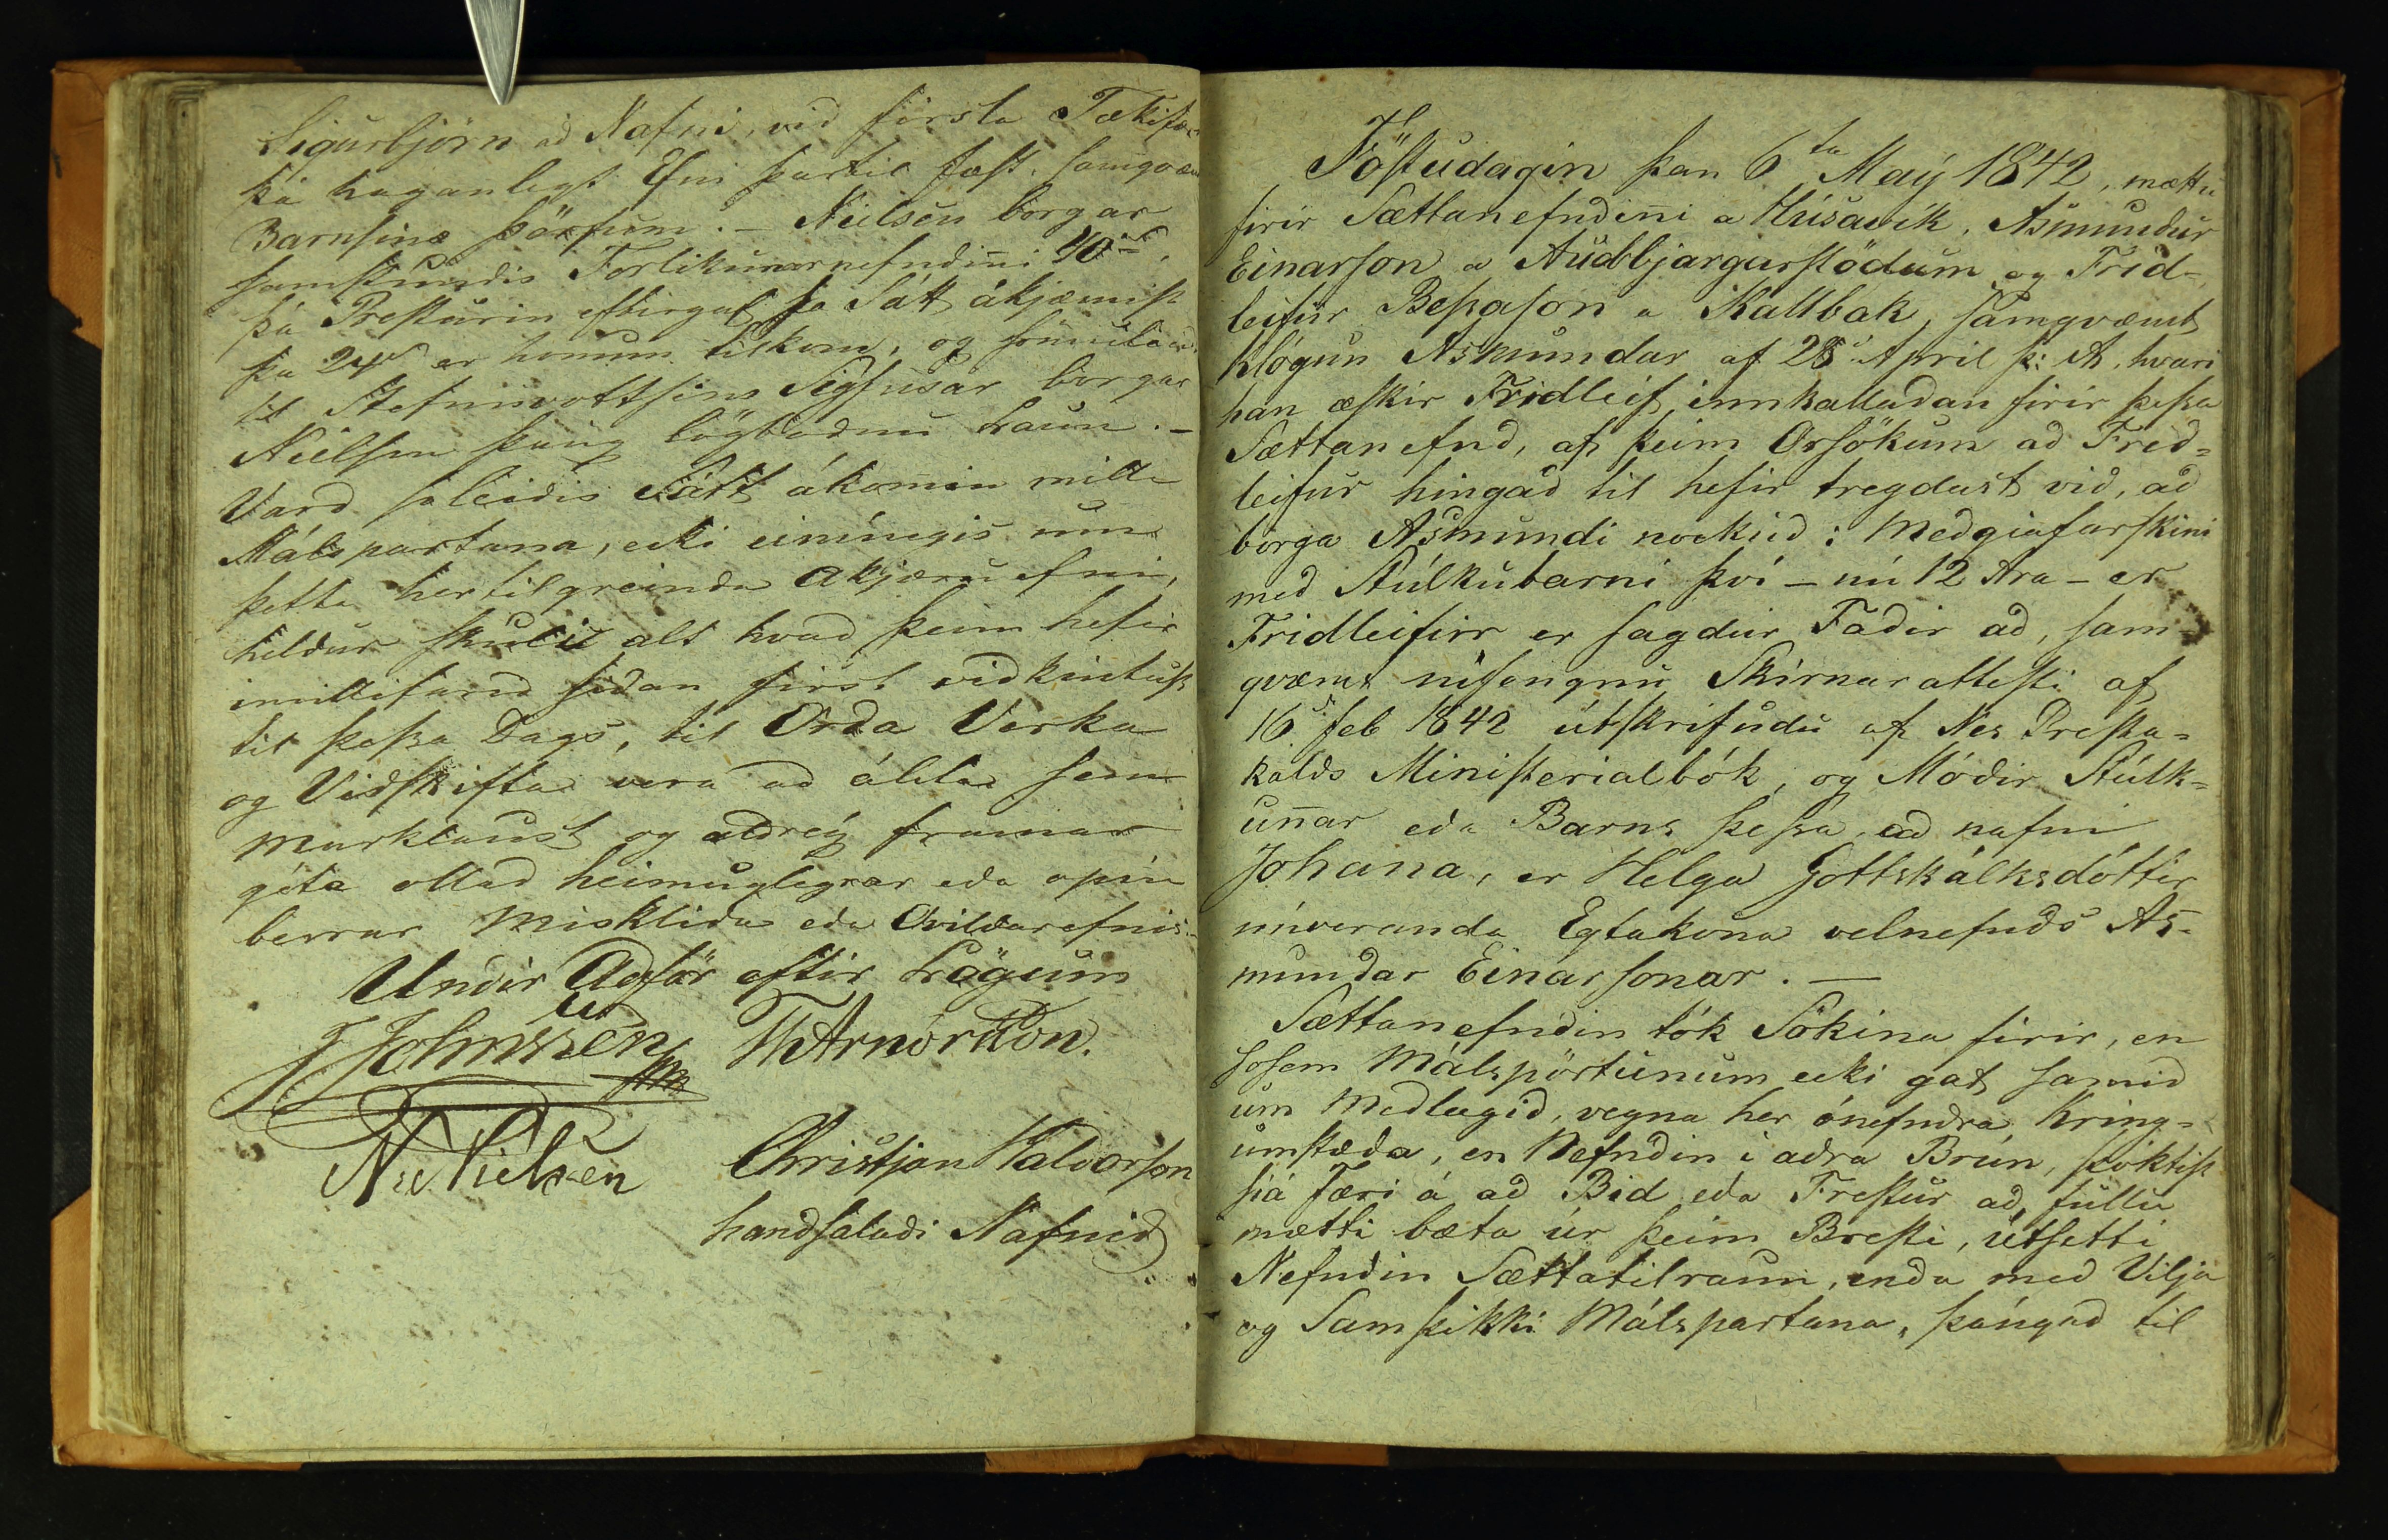 Sigurbjörn að Nafni, við firsta Tækifæri
þá haganlegt Efni þartil fæst, samgvæmt
Barnsins þörfum. – Nielsen borgar
samstundis Forlikunarnefndinni 40
þá Presturin eftirgaf so Sátt ákjæmist
þá 24 er honum tilkom, og
til Stefnuvottsins Sigfusar borgar
Nielsen þaug lögboðnu Laun. –
Varð soleiðis Sátt ákomin milli
Málspartana, ecki einúngis um
þetta hertilgreinda Akjæruefni,
heldur skulie alt hvað þeim hefir
imillifarið siðan first viðkintust
til þessa Dags, til Orða Verka
og Viðskifta vera að álita sem
marklaust og aldreÿ framar
géta ollað heimuglegrar eða opin
berrar Miskliðar eða Ovildarefnis.
Undir Aðför eftir Lögum
J Johnssen ThArnórsson.
N: Nielsen Christjan Halvorsson
handsalaði Nafnið
Föstudagin þan 6ta Maÿ 1842, mættu
firir Sættanefndinni a Húsavík, Asmundur
Einarsson a Auðbjargarstöðum og Frið-
leifur Bessason a Kaltbak, samgvæmt
klögun Asmundar af 28 April þ: A. hvari
han æskir Friðleif innkallaðan firir þessa
Sættanefnd, af þeim Orsökum að Frið-
leifur hingað til hefir tregdast við, að
borga Asmundi nockuð i Meðgiafarskini
með Stúlkubarni því – nú 12 Ara – er
Fridleifur er sagdur Faðir að, sam-
gvæmt nífengnu Skirnarattesti af
16 Feb 1842 útskrifuðu af Nes Presta-
kalds Ministerialbók, og Móðir Stúlk-
unnar eða Barns þessa, að nafni
Johana, er Helga Gottskálksdóttir
núveranda Egtakona velnefnds As-
mundar Einarssonar. –
Sættanefndin tók Sökina firir, en
sosem Málspörtunum ecki gat samið
um Meðlagið, vegna her ónefndra Kring-
umstæða, en Nefndin i aðra Brún, þóktist
siá Færi á, að Bið eða Frestur að fullu
mætti bæta úr þeim Bresti, útsetti
Nefndin Sættatilraun, enda með Vilja
og Samþikki Málspartana, þángað til